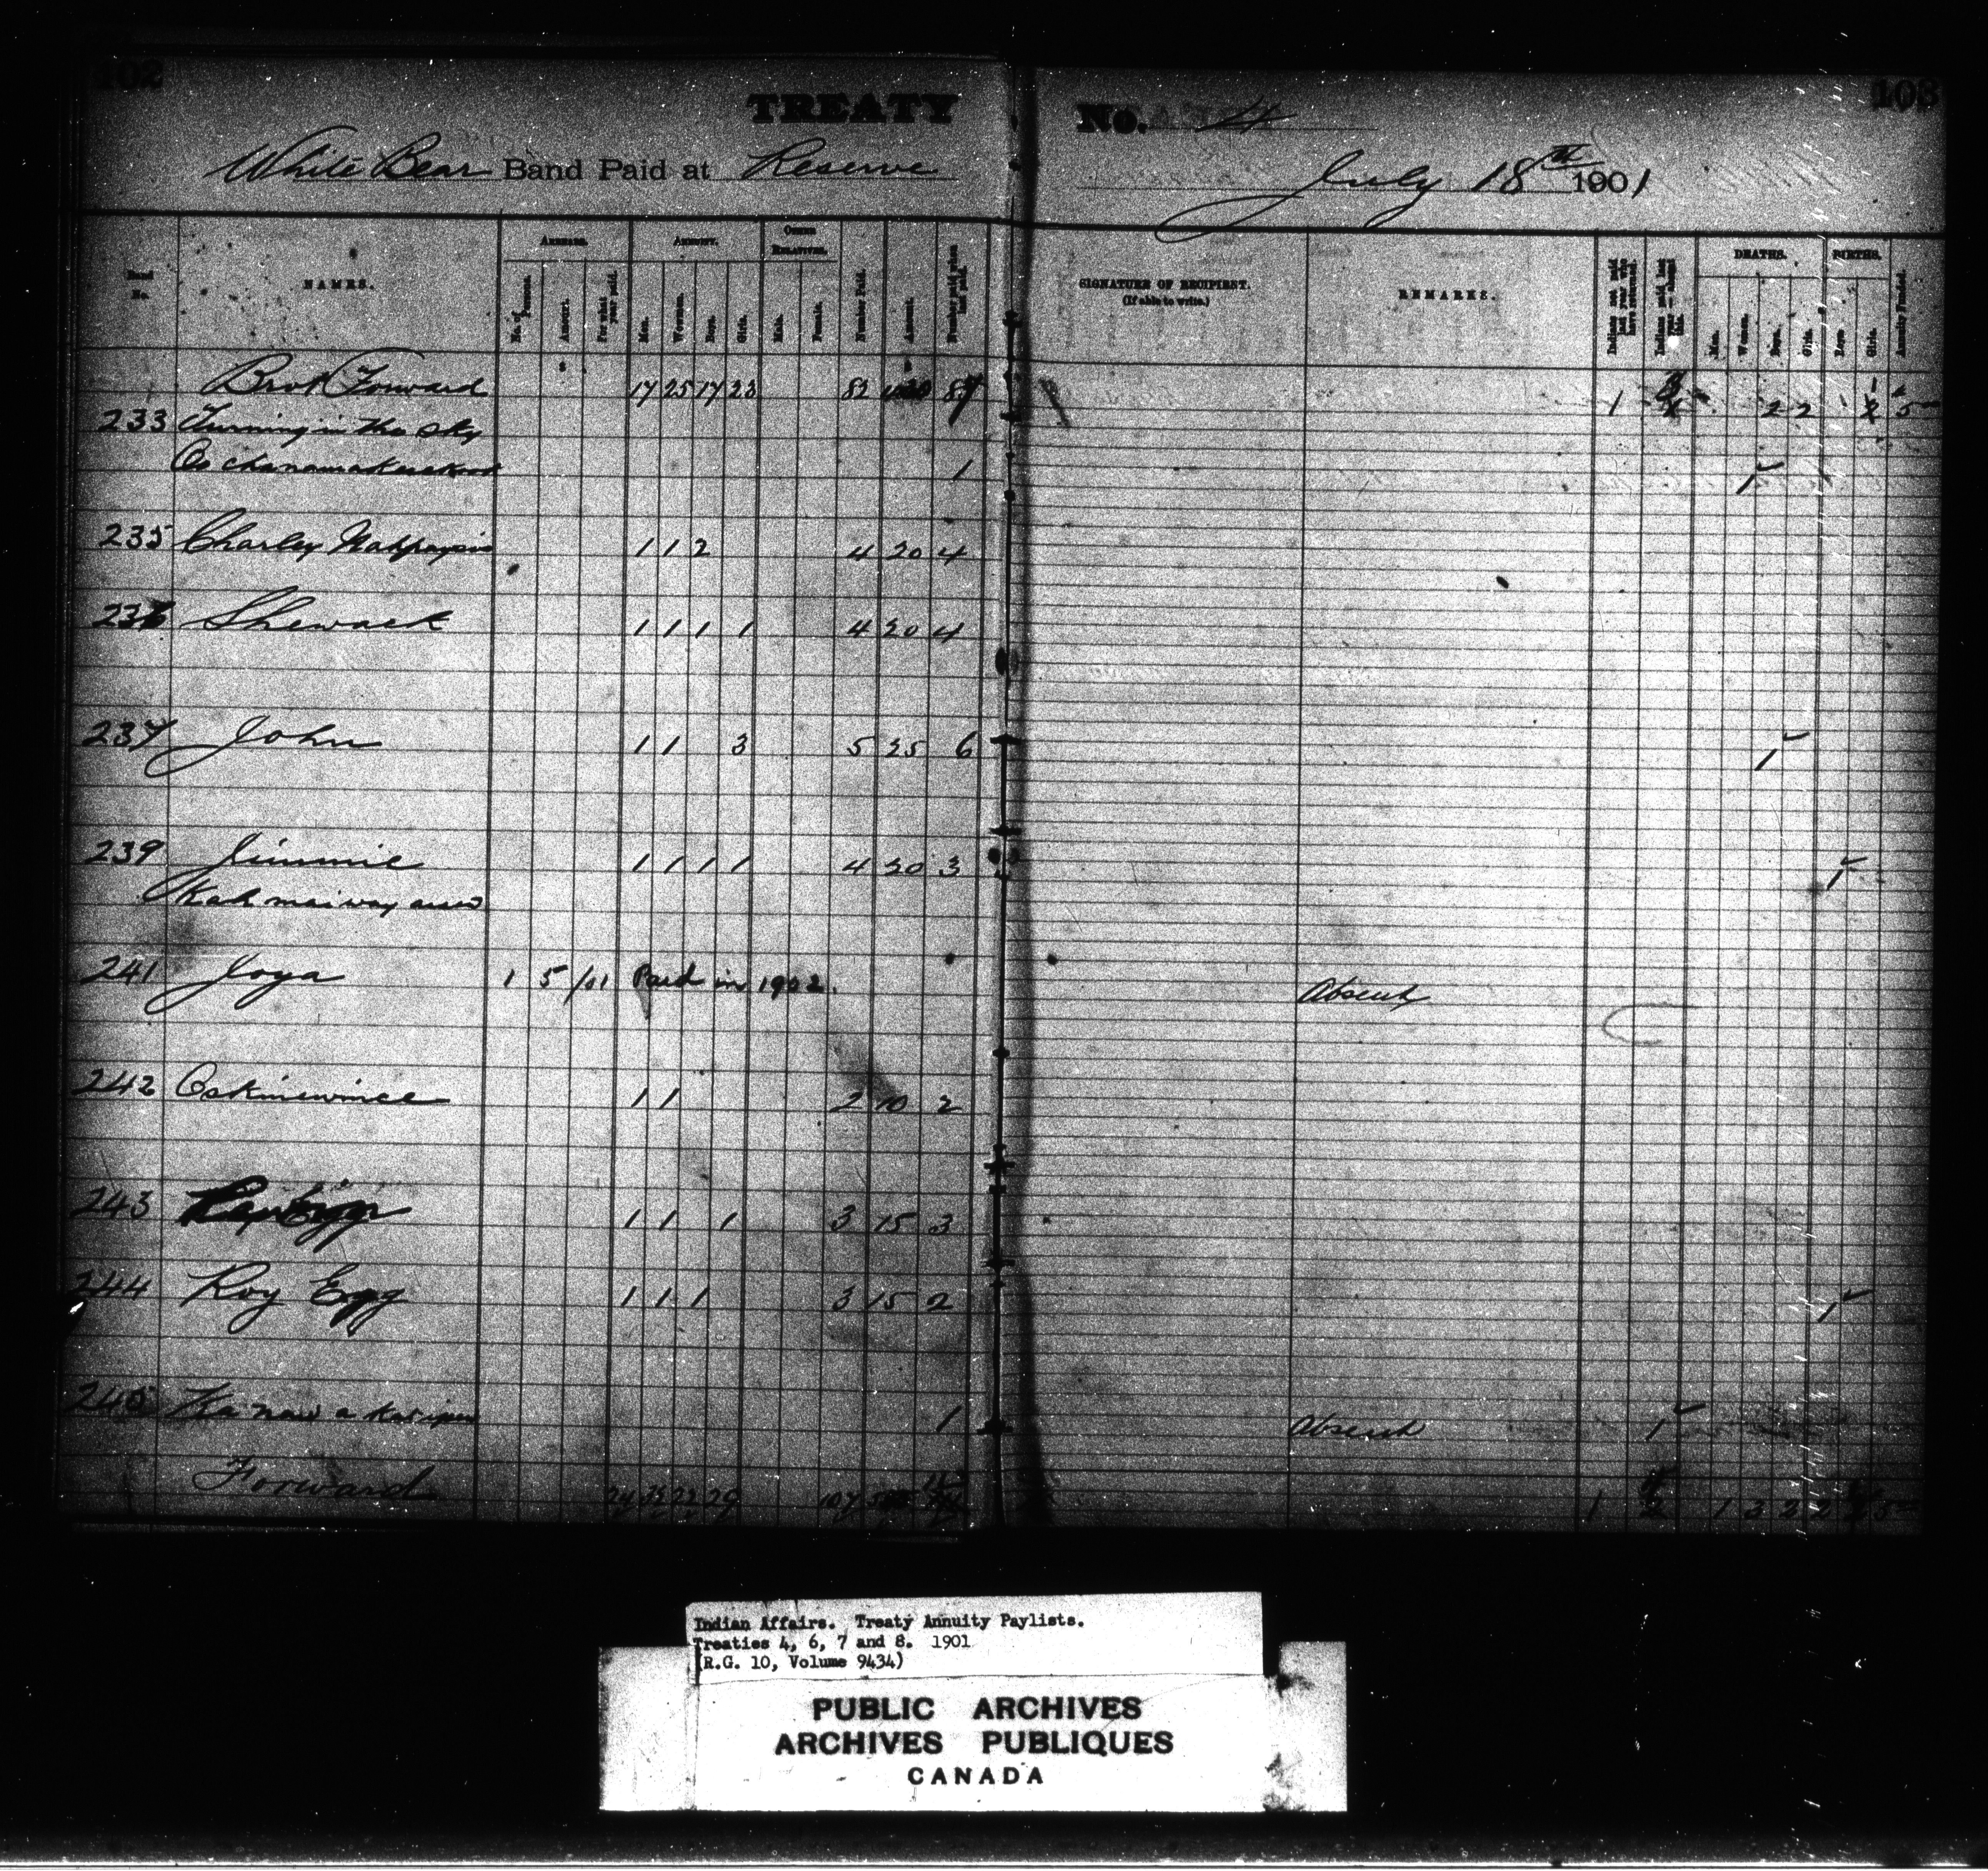 102
103
TREATY No. 4
White Bear Band Paid at Reserve July 18th 1901
Band No.
NAMES.
ARREARS.
No. of Persons.
Amount.
For what year paid.
ANNUITY.
Men.
Women.
Boys.
Girls.
OTHER RELATIVES.
Male.
Female.
Number Paid.
Amount.
Number paid when last paid.
SIGNATURE OF RECIPIENT.
(If able to write.)
REMARKS.
Indians not paid last year who have returned.
DEATHS.
Men.
Women.
Boys.
Girls.
BIRTHS.
Boys
Girls.
Annuity Funded.
Brot Forward 17 25 17 23 82 1 2 2 5
233 Turning in the sky
1 1
235 Charley 1 1 2 4 20 4
236 Shewack 1 1 1 1 4 20 4
237 John 1 1 3 5 25 6 1
239 Jimmie 1 1 1 1 4 20 3 1
241 Joya 1 5 /01 Paid in 1902. Absent
242 Oskinewince 1 1 2 10 2
243 1 1 1 3 15 3
244 Roy Egg 1 1 1 3 15 2 1
245 1 Absent 1
Forward 24 33 22 29 107 1 2 1 3 2 2 5
Indian Affairs. Treaty Annuity Paylists.
Treaties 4, 6, 7 and 8. 1901
(R.G. 10, Volume 9434)
PUBLIC ARCHIVES
ARCHIVES PUBLIQUES
CANADA